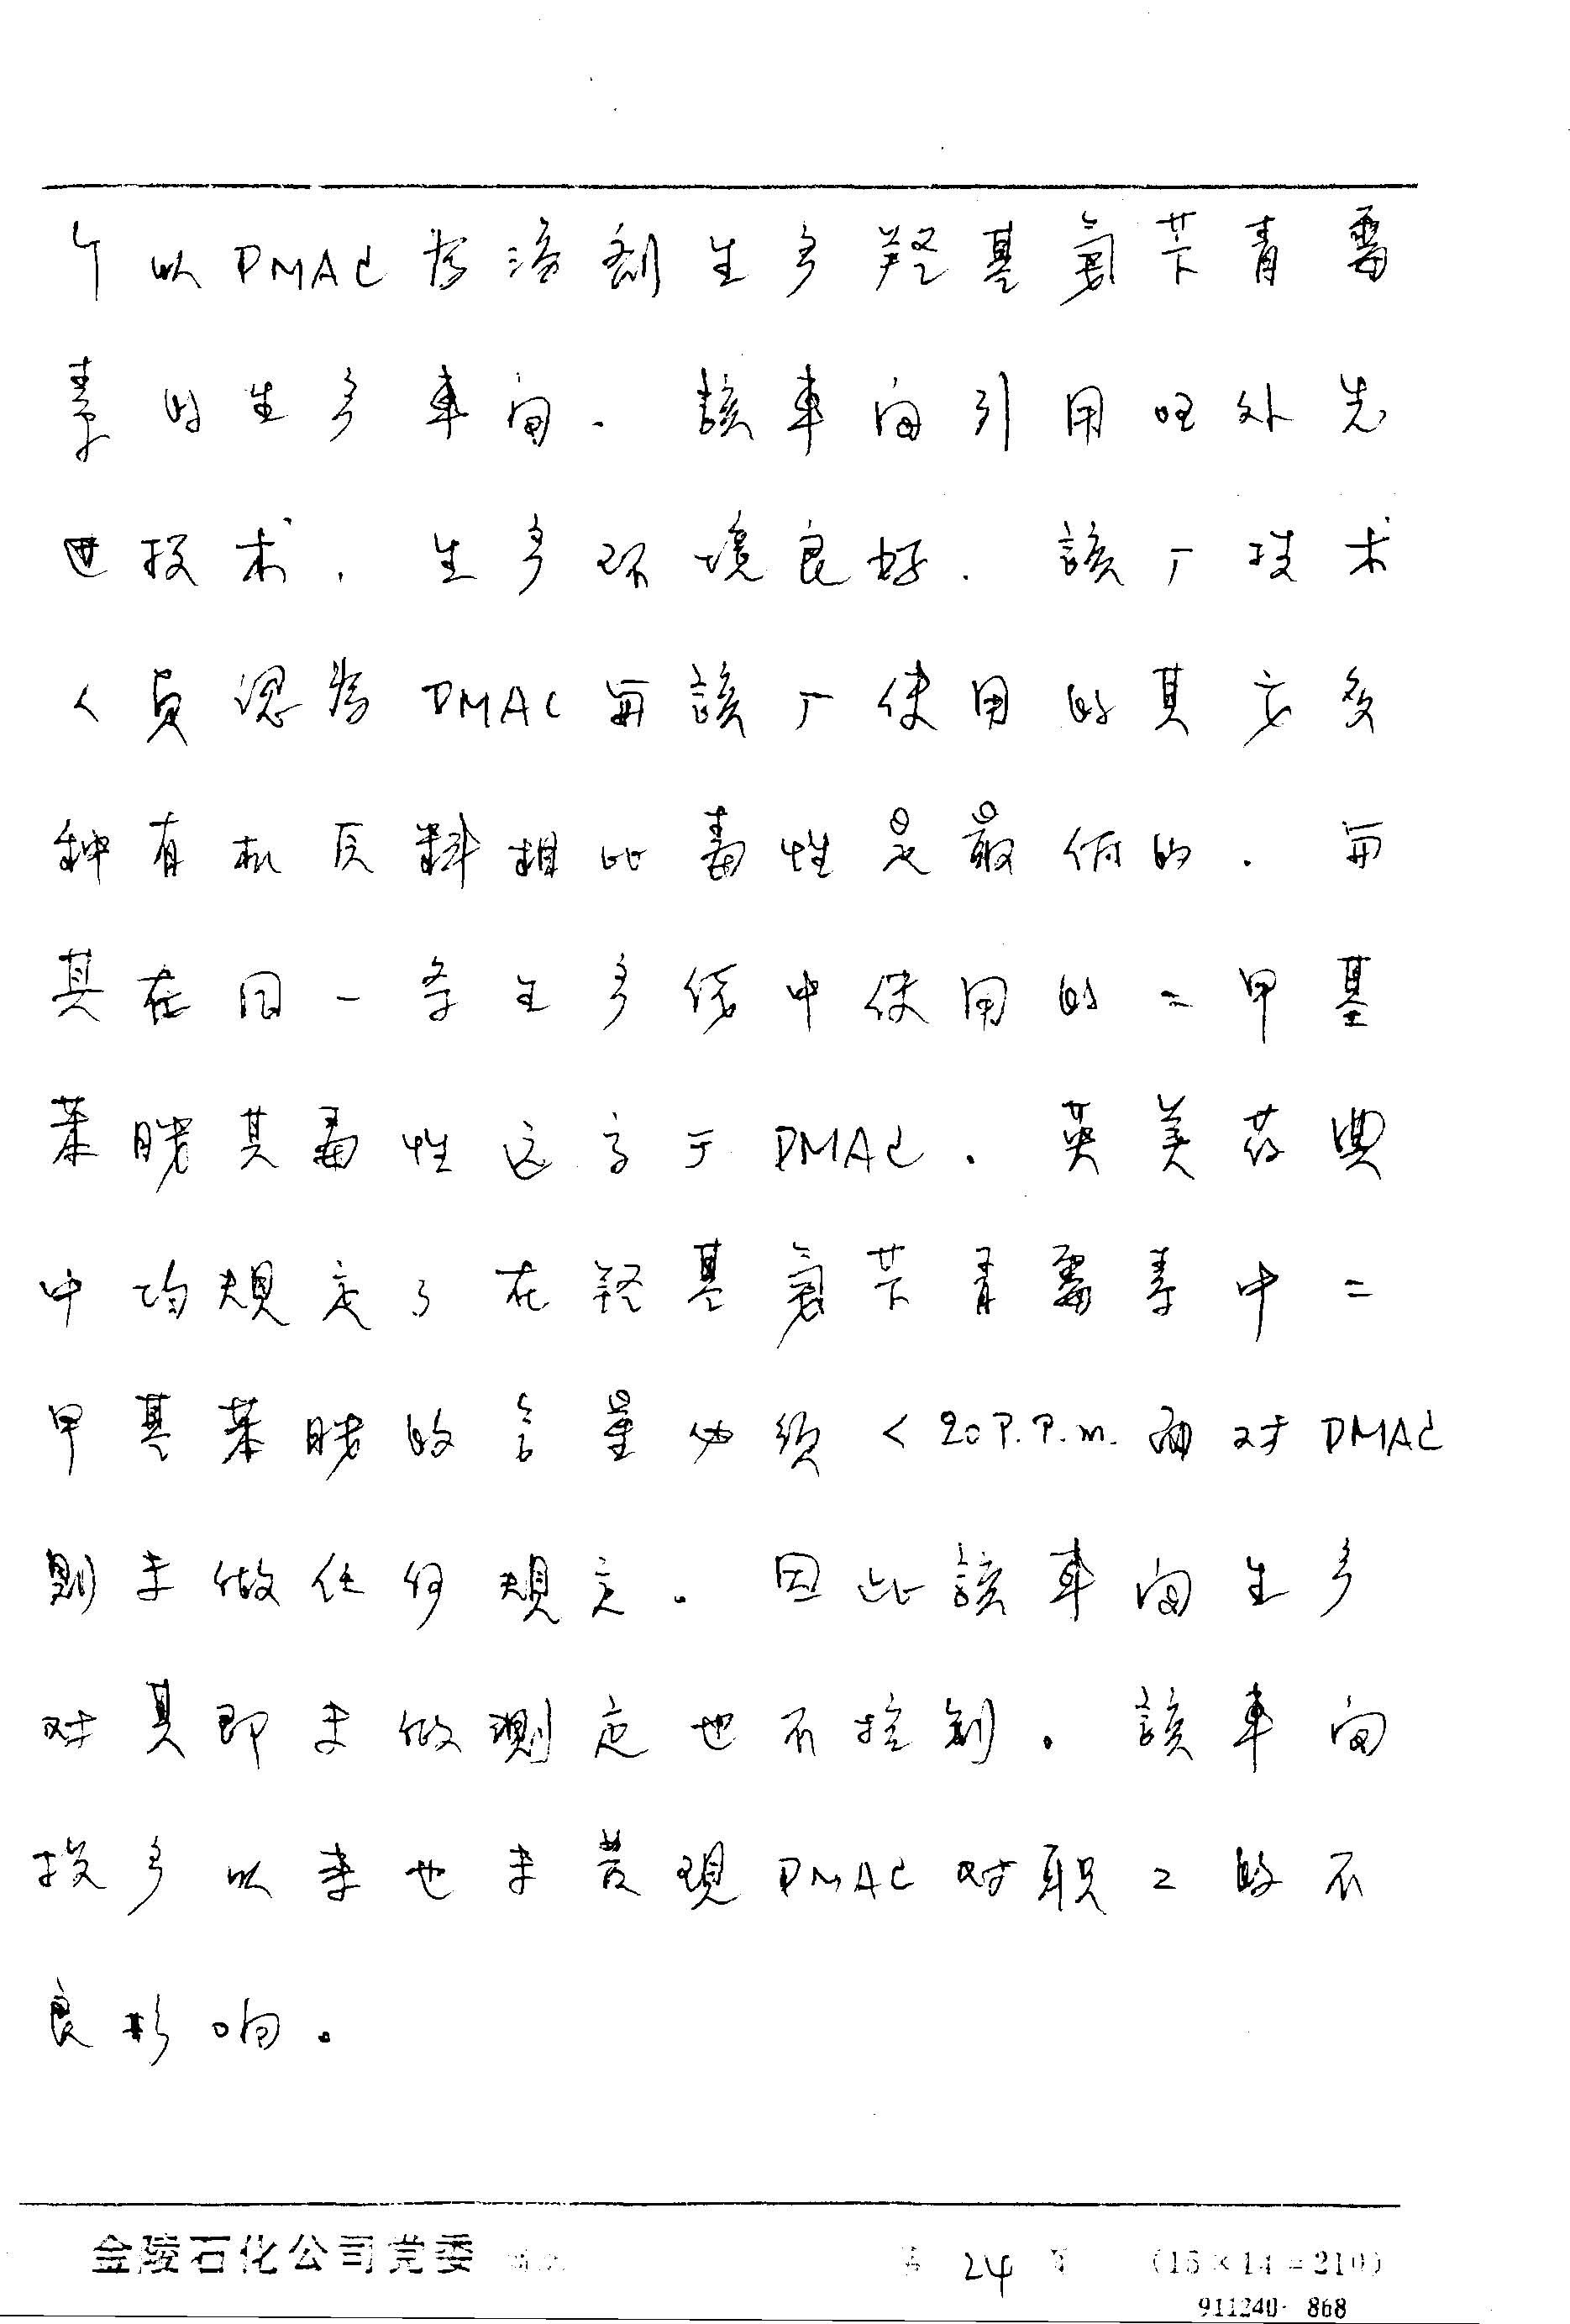 个以DMAC为溶剂生产羟基氨苄青霉
素的生产车间．該车间引用国外先
进技术，生产环境良好．該厂技术
人员認为DMAC与該厂使用的其它多
种有机原料相比毒性是最低的．与
其在同一条生产线中使用的二甲基
苯胺其毒性远高于DMAC．英美药典
中均規定了在羟基氨苄青霉素中二
甲基苯胺的含量必须<20P.P.m.而对DMAC
則未做任何規定．因此該车间生产
对其即未做测定也不控制．該车间
投产以来也未发現DMAC对职工的不
良影响．
金陵石化公司党委
第 24 页 (15×14=210)
911240· 868